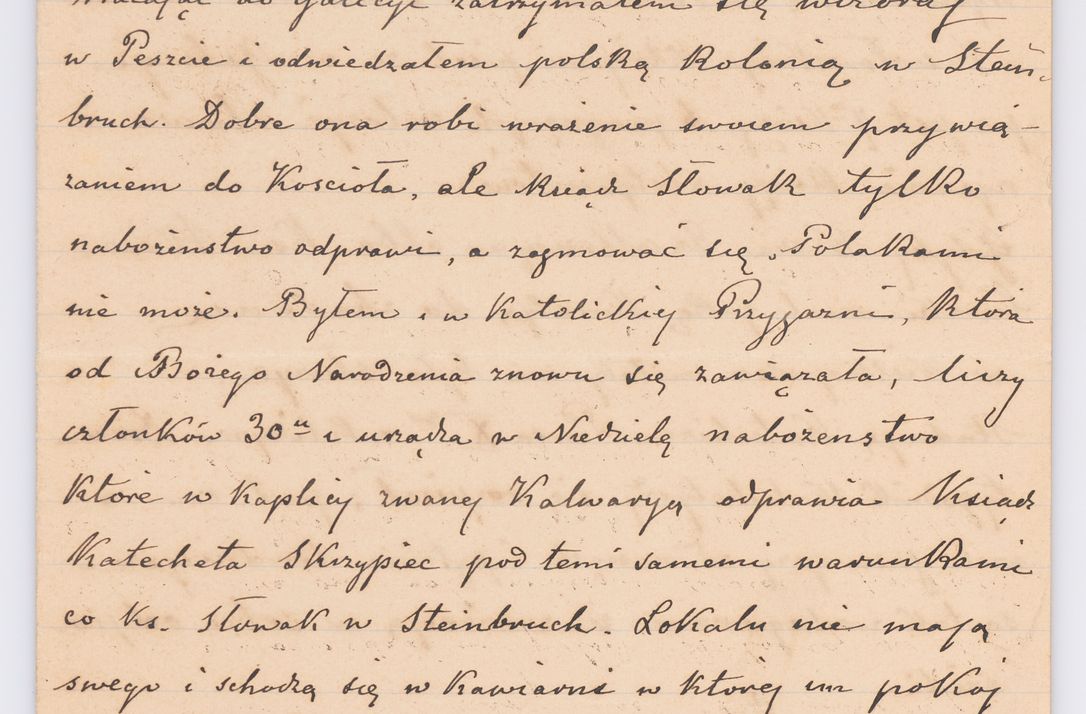 wracając do Galicyi zatrzymałem się wczoraj
w Peszcie i odwiedzałem polską Kolonią w Stein-
bruch. Dobre ona robi wrażenie swoiem przywią-
zaniem do Kościoła, ale Ksiądz Słowak tylko
nabożenstwo odprawi, a zajmować się Polakami
nie może. Byłem i w Katolickiej Przyjazni, Która
od Bożego Narodzenia znowu się zawiązała, liczy
członków 30u i urządza w Niedzielę nabożenstwo
Które w Kaplicy zwanej Kalwaryją odprawia Ksiądz
Katecheta Skrzypiec pod temi samemi warunkami
co ks. Słowak w Steinbruch. Lokalu nie mają
swego i schodzą się w Kawiarni w Której im pokój